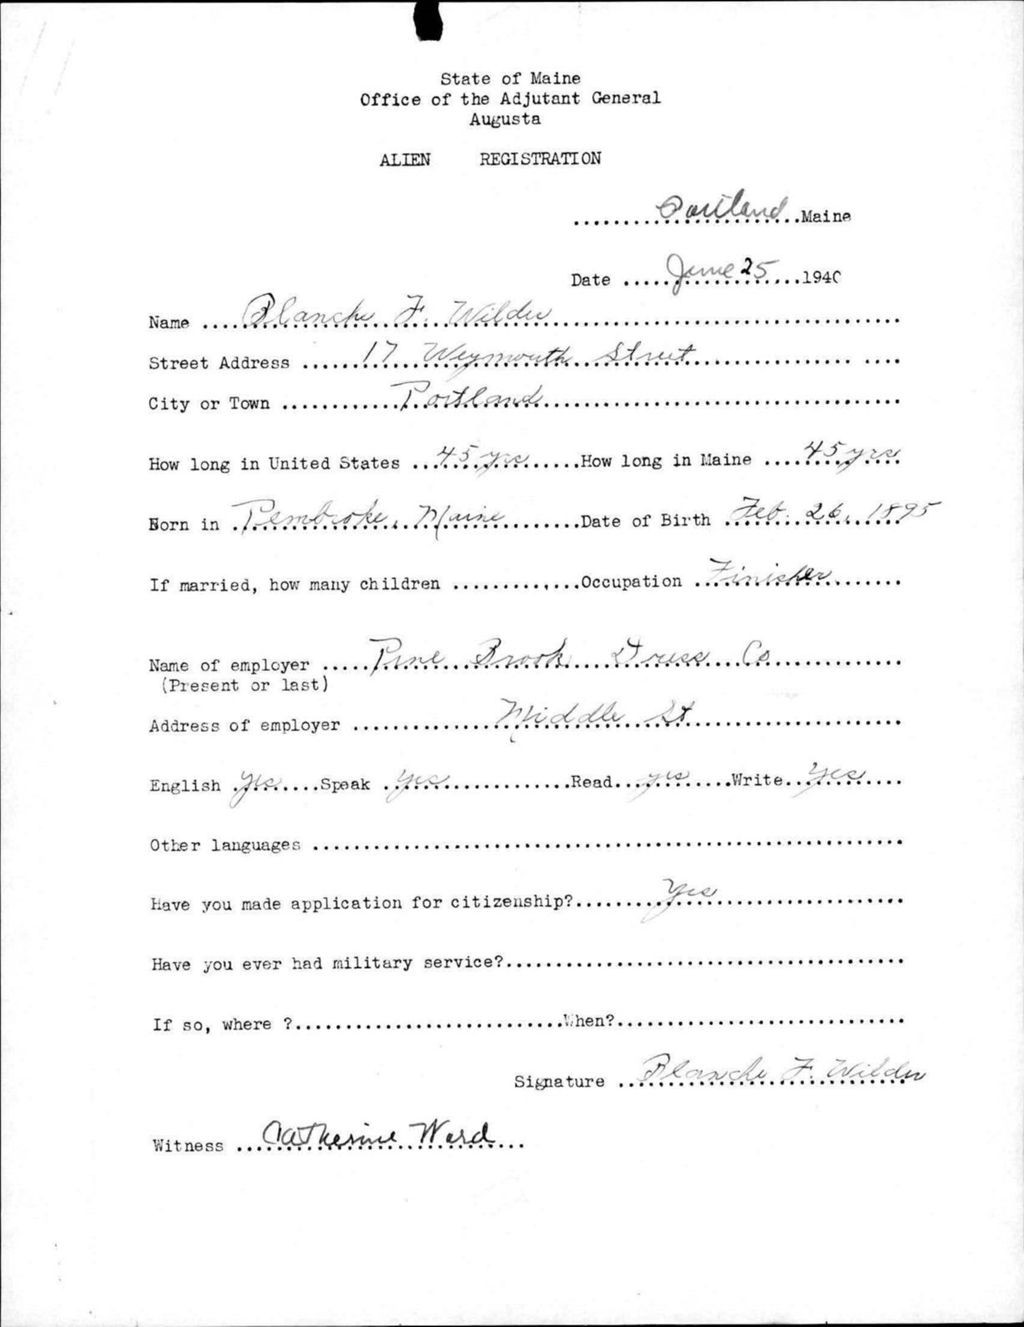 State of Maine
Office of the Adjutant General
Augusta
ALIEN REGISTRATION
Portland Maine
Date June 25 1940
Name Blanche F. Wilder
Street Address 17 Weymouth Street
City or Town Portland
How long in United States 45 yrs How long in Maine 45 yrs
Born in Pembroke, Maine Date of Birth Feb. 26, 1895
If married, how many children Occupation Finisher
Name of employer Pine Brook Dress Co
(Present or last)
Address of employer Middle St
English Yes Speak Yes Read yes Write Yes
Other languages
Have you made application for citizenship? Yes
Have you ever had military service?
If so, where ? When?
Signature Blanche F. Wilder
Witness Catherine Ward